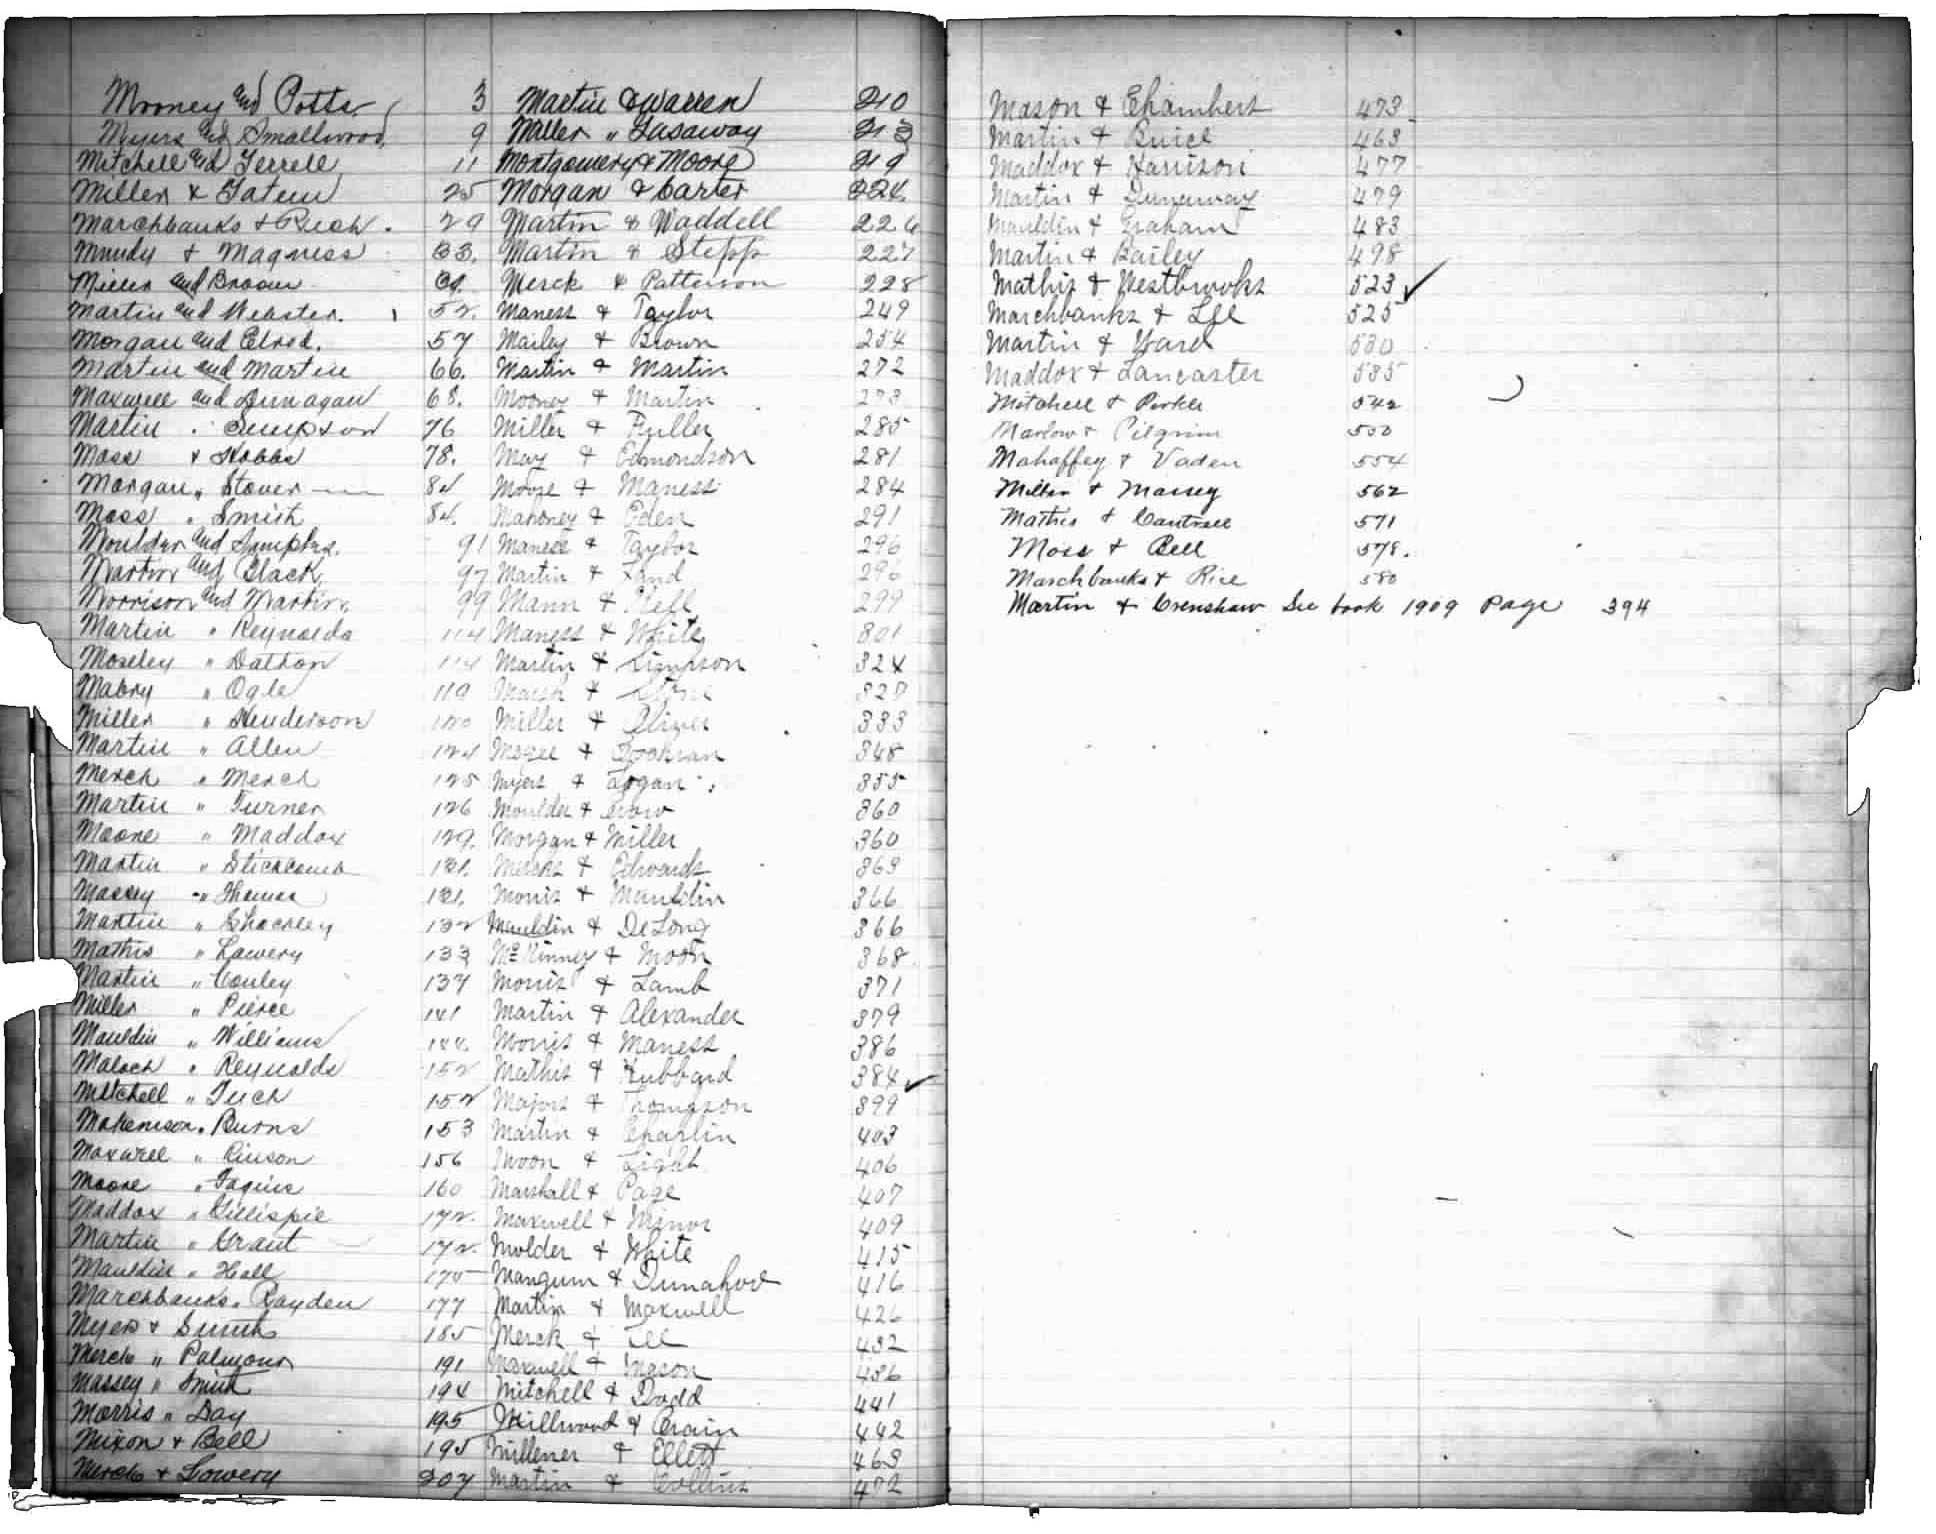 Mooney and Potts 3
Myers and Smallwood 9
Mitchell and Terrell 11
Miller & Tatum 25
Marchbanks & Rich 29
Mundy & Magness 33.
Miller and Brown
Martin and Webster 52.
Morgan and Elrod. 57
Martin and Martin 66.
Maxwell and Dunagan 68.
Martin Simpson 76
Moss & Hobbs 78.
Morgan " Stover 84
Moss " Smith 84.
Moulder and 91
Martin and Black 97
Morrison and Martin 99
Martin " Reynolds 114
Moseley " Dalton 114
Mabry " Ogle 119
Miller " Henderson 120
Martin " Allen 124
Merck " Merck 125
Martin " Turner 126
Moore " Maddox 129.
Martin " Stickcomb 131.
Massey " Thomas 131.
Martin " Shockley 132
Mathis " Lowery 133
Martin " Conley 137
Miller " Pierce 141
Mauldin " Williams 144.
Maloch " Reynolds 152
Mitchell " Tuck 152
Makemson " Burns 153
Maxwell " Pinson 156
Moore " 160
Maddox " Gillispie 172.
Martin " Grant 172.
Mauldin " Hall 175
Marchbanks " Rayden 177
Myers & Smith 185
Merck " Palmour 191
Massey " Smith 194
Morris " Day 195
Mixon & Bell 195
Merck & Lowery 207
Martin & Warren 210
Miller " Gasaway 213
Montgomery & Moore 219
Morgan & Carter 224.
Martin & Waddell 226
Martin & Stepp 227
Merck & Patterson 228
Maness & Taylor 249
Mailey & Brown 254
Martin & Martin 272
Mooney & Martin 273
Miller & Fuller 285
May & Edmondson 281
Moore & Maness 284
Mahoney & Eden 291
Maness & Taylor 296
Martin & Land 296
Mann & Neff 299
Maness & White 301
Martin & Simpson 324
Marsh & Stone 327
Miller & Oliver 333
Magee & Cochran 348
Myers & Logan 355
Moulder & Crow 360
Morgan & Miller 360
Mercks & Edwards 363
Morris & Mauldin 366
Mauldin & DeLong 366
McKinney & Moon 368
Morris & Lamb 371
Martin & Alexander 379
Morris & Maness 386
Mathis & Hubbard 384
Majors & Thompson 399
Martin & Chaplin 403
Moon & Light 406
Marshall & Page 407
Maxwell & Minor 409
Molder & White 415
Mangum & Dunahoo 416
Martin & Maxwell 426
Merck & Lee 432
Maxwell & Mason 436
Mitchell & Dodd 441
Millwood & Crain 442
Millener & Ellett 463
Martin & Collins 472
Mason & Chambers 473
Martin & Buice 463
Maddox & Harrison 477
Martin & Dunaway 479
Mauldin & Graham 483
Martin & Bailey 498
Mathis & Westbrooks 523
Marchbanks & Lee 525
Martin & Ward 530
Maddox & Lancaster 535
Mitchell & Parker 542
Marlow & Pilgrim 550
Mahaffey & Vaden 554
Miller & Massey 562
Mathis & Cantrell 571
Moss & Bell 578.
Marchbanks & Rice 580
Martin & Crenshaw See book 1909 Page 394